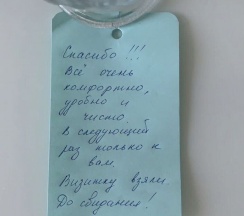 Спасибо !!!
Всё очень
комфортно,
удобно и
чисто.
В следующий
раз только к
вам.
Визитку взяли
До свидания!